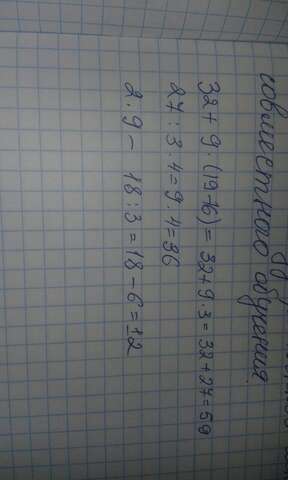 совместного обучения
32 + 9 · (19-16) = 32 + 9 · 3 = 32 + 27 = 59
27 : 3 · 4 = 9 · 4 = 36
2 · 9 - 18 : 3 = 18 - 6 = 12